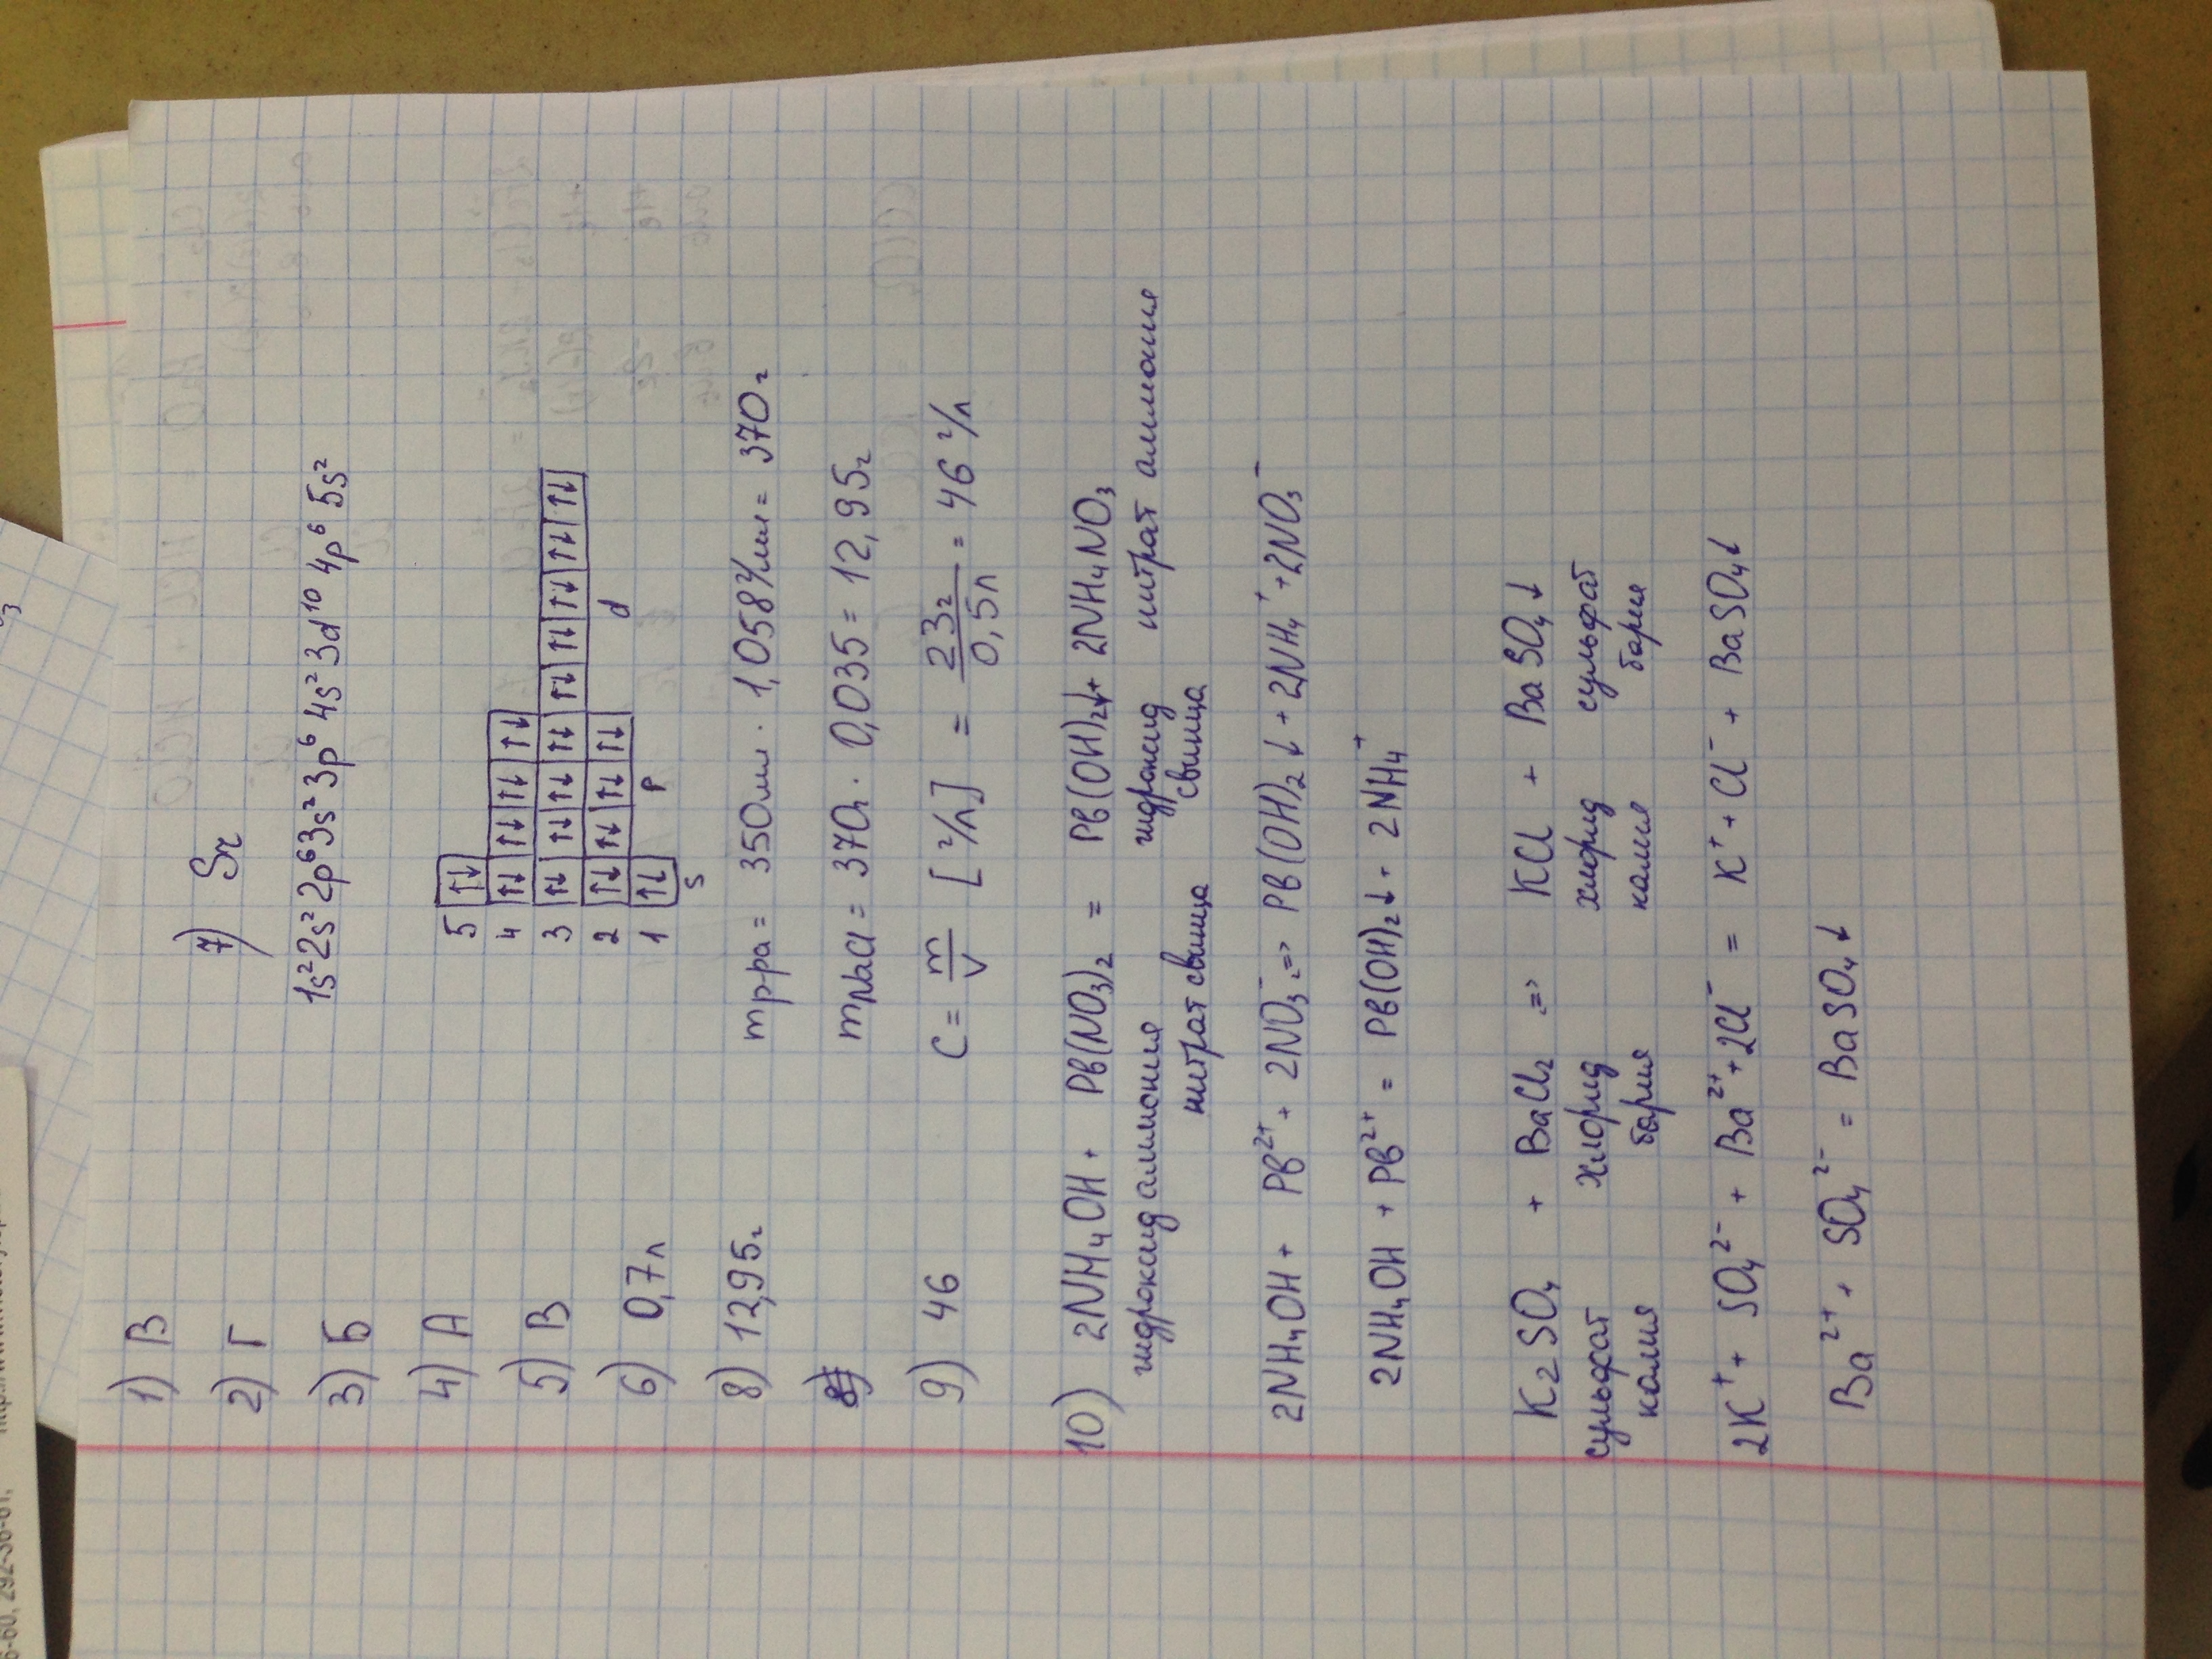 1) В
2) Г
3) Б
4) А
5) В
6) 0,7 л
7) Sr
1s² 2s² 2p⁶ 3s² 3p⁶ 4s² 3d¹⁰ 4p⁶ 5s²
5 ↑↓
4 ↑↓ ↑↓ ↑↓ ↑↓
3 ↑↓ ↑↓ ↑↓ ↑↓ ↑↓ ↑↓ ↑↓ ↑↓ ↑↓
2 ↑↓ ↑↓ ↑↓ ↑↓
1 ↑↓
s p d
8) 12,95 г
m р-ра = 350 мл · 1,058 г/мл = 370 г
m NaCl = 370 г · 0,035 = 12,95 г
9) 46
C = m/V [г/л] = 23 г/0,5 л = 46 г/л
10) 2NH₄OH + Pb(NO₃)₂ = Pb(OH)₂↓ + 2NH₄NO₃
гидроксид аммония нитрат свинца гидроксид свинца нитрат аммония
2NH₄OH + Pb²⁺ + 2NO₃⁻ => Pb(OH)₂↓ + 2NH₄⁺ + 2NO₃⁻
2NH₄OH + Pb²⁺ = Pb(OH)₂↓ + 2NH₄⁺
K₂SO₄ + BaCl₂ => KCl + BaSO₄↓
сульфат калия хлорид бария хлорид калия сульфат бария
2K⁺ + SO₄²⁻ + Ba²⁺ + 2Cl⁻ = K⁺ + Cl⁻ + BaSO₄↓
Ba²⁺ + SO₄²⁻ = BaSO₄↓